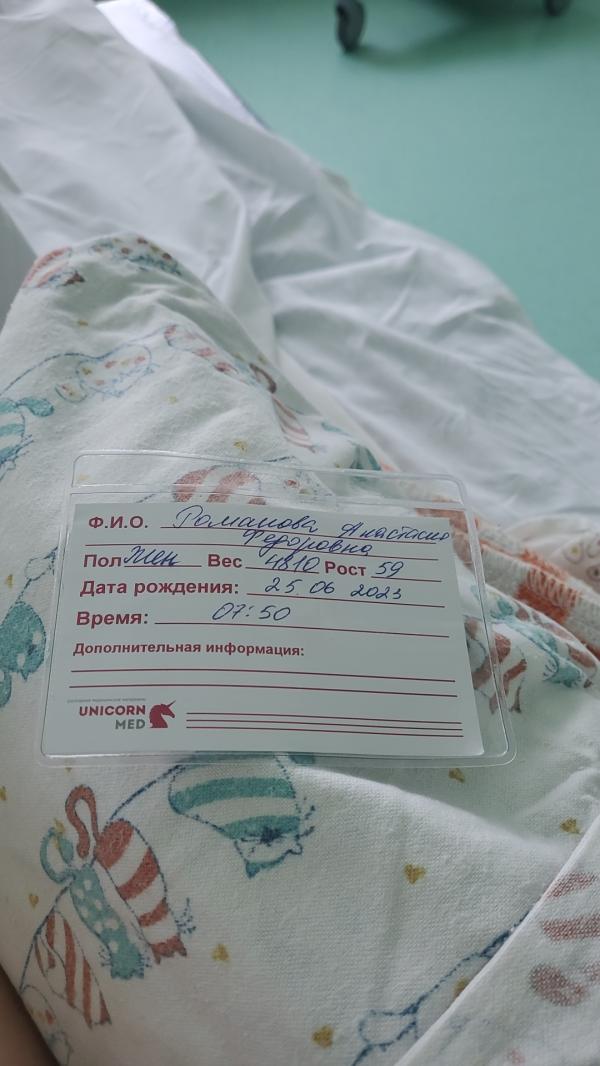 Ф.И.О. Романова Анастасия
Федоровна
Пол Жен Вес 4810 Рост 59
Дата рождения: 25 06 2023
Время: 07:50
Дополнительная информация:
UNICORN
MED